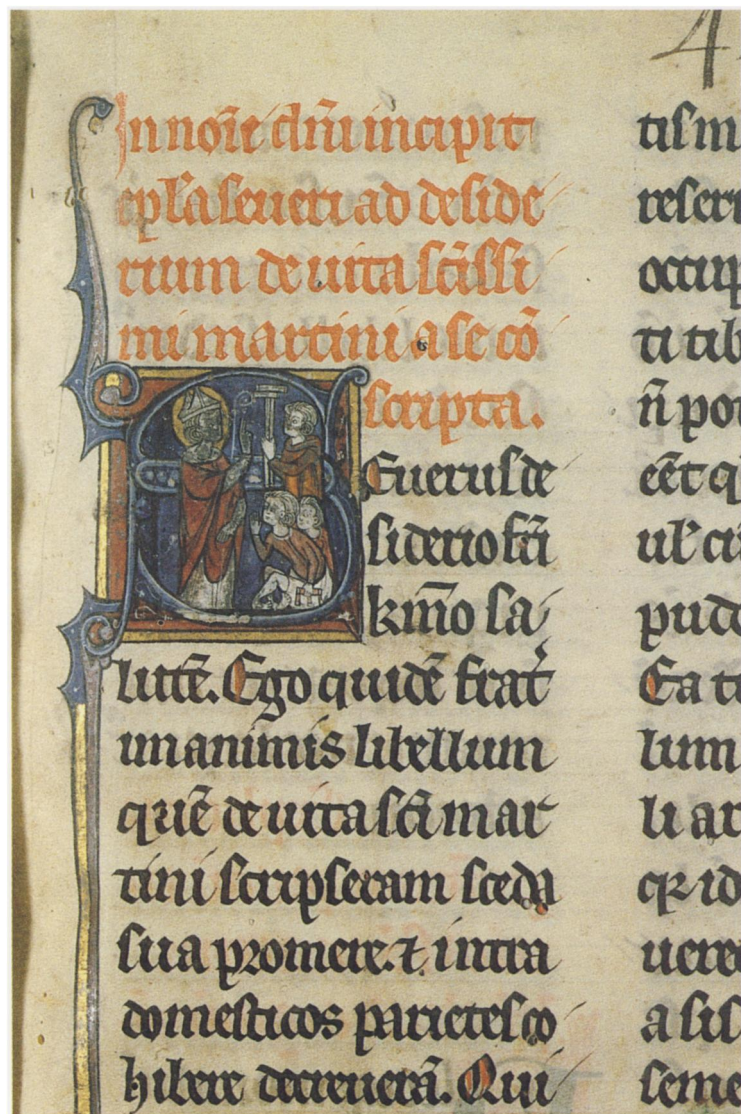 In noīe dn̄i incipit
epl̄a seueri ad deside
rium de uita sc̄issi
mi martini a se cō
scripta.
Seuerus de
siderio fr̄i
km̄o sa
lutē. Ego quidē frat̓
unanimis libellum
quē de uita sc̄i mar
tini scripseram sceda
sua promere. ⁊ intra
domesticos parietes co
hibere decreuerā. Qui
4
tis in
reser
occup
ti tib
n̄ po
eēt q
ul̓ cu
pud
Ea t
lum
li ar
qꝛ id
uere
a sis
seme